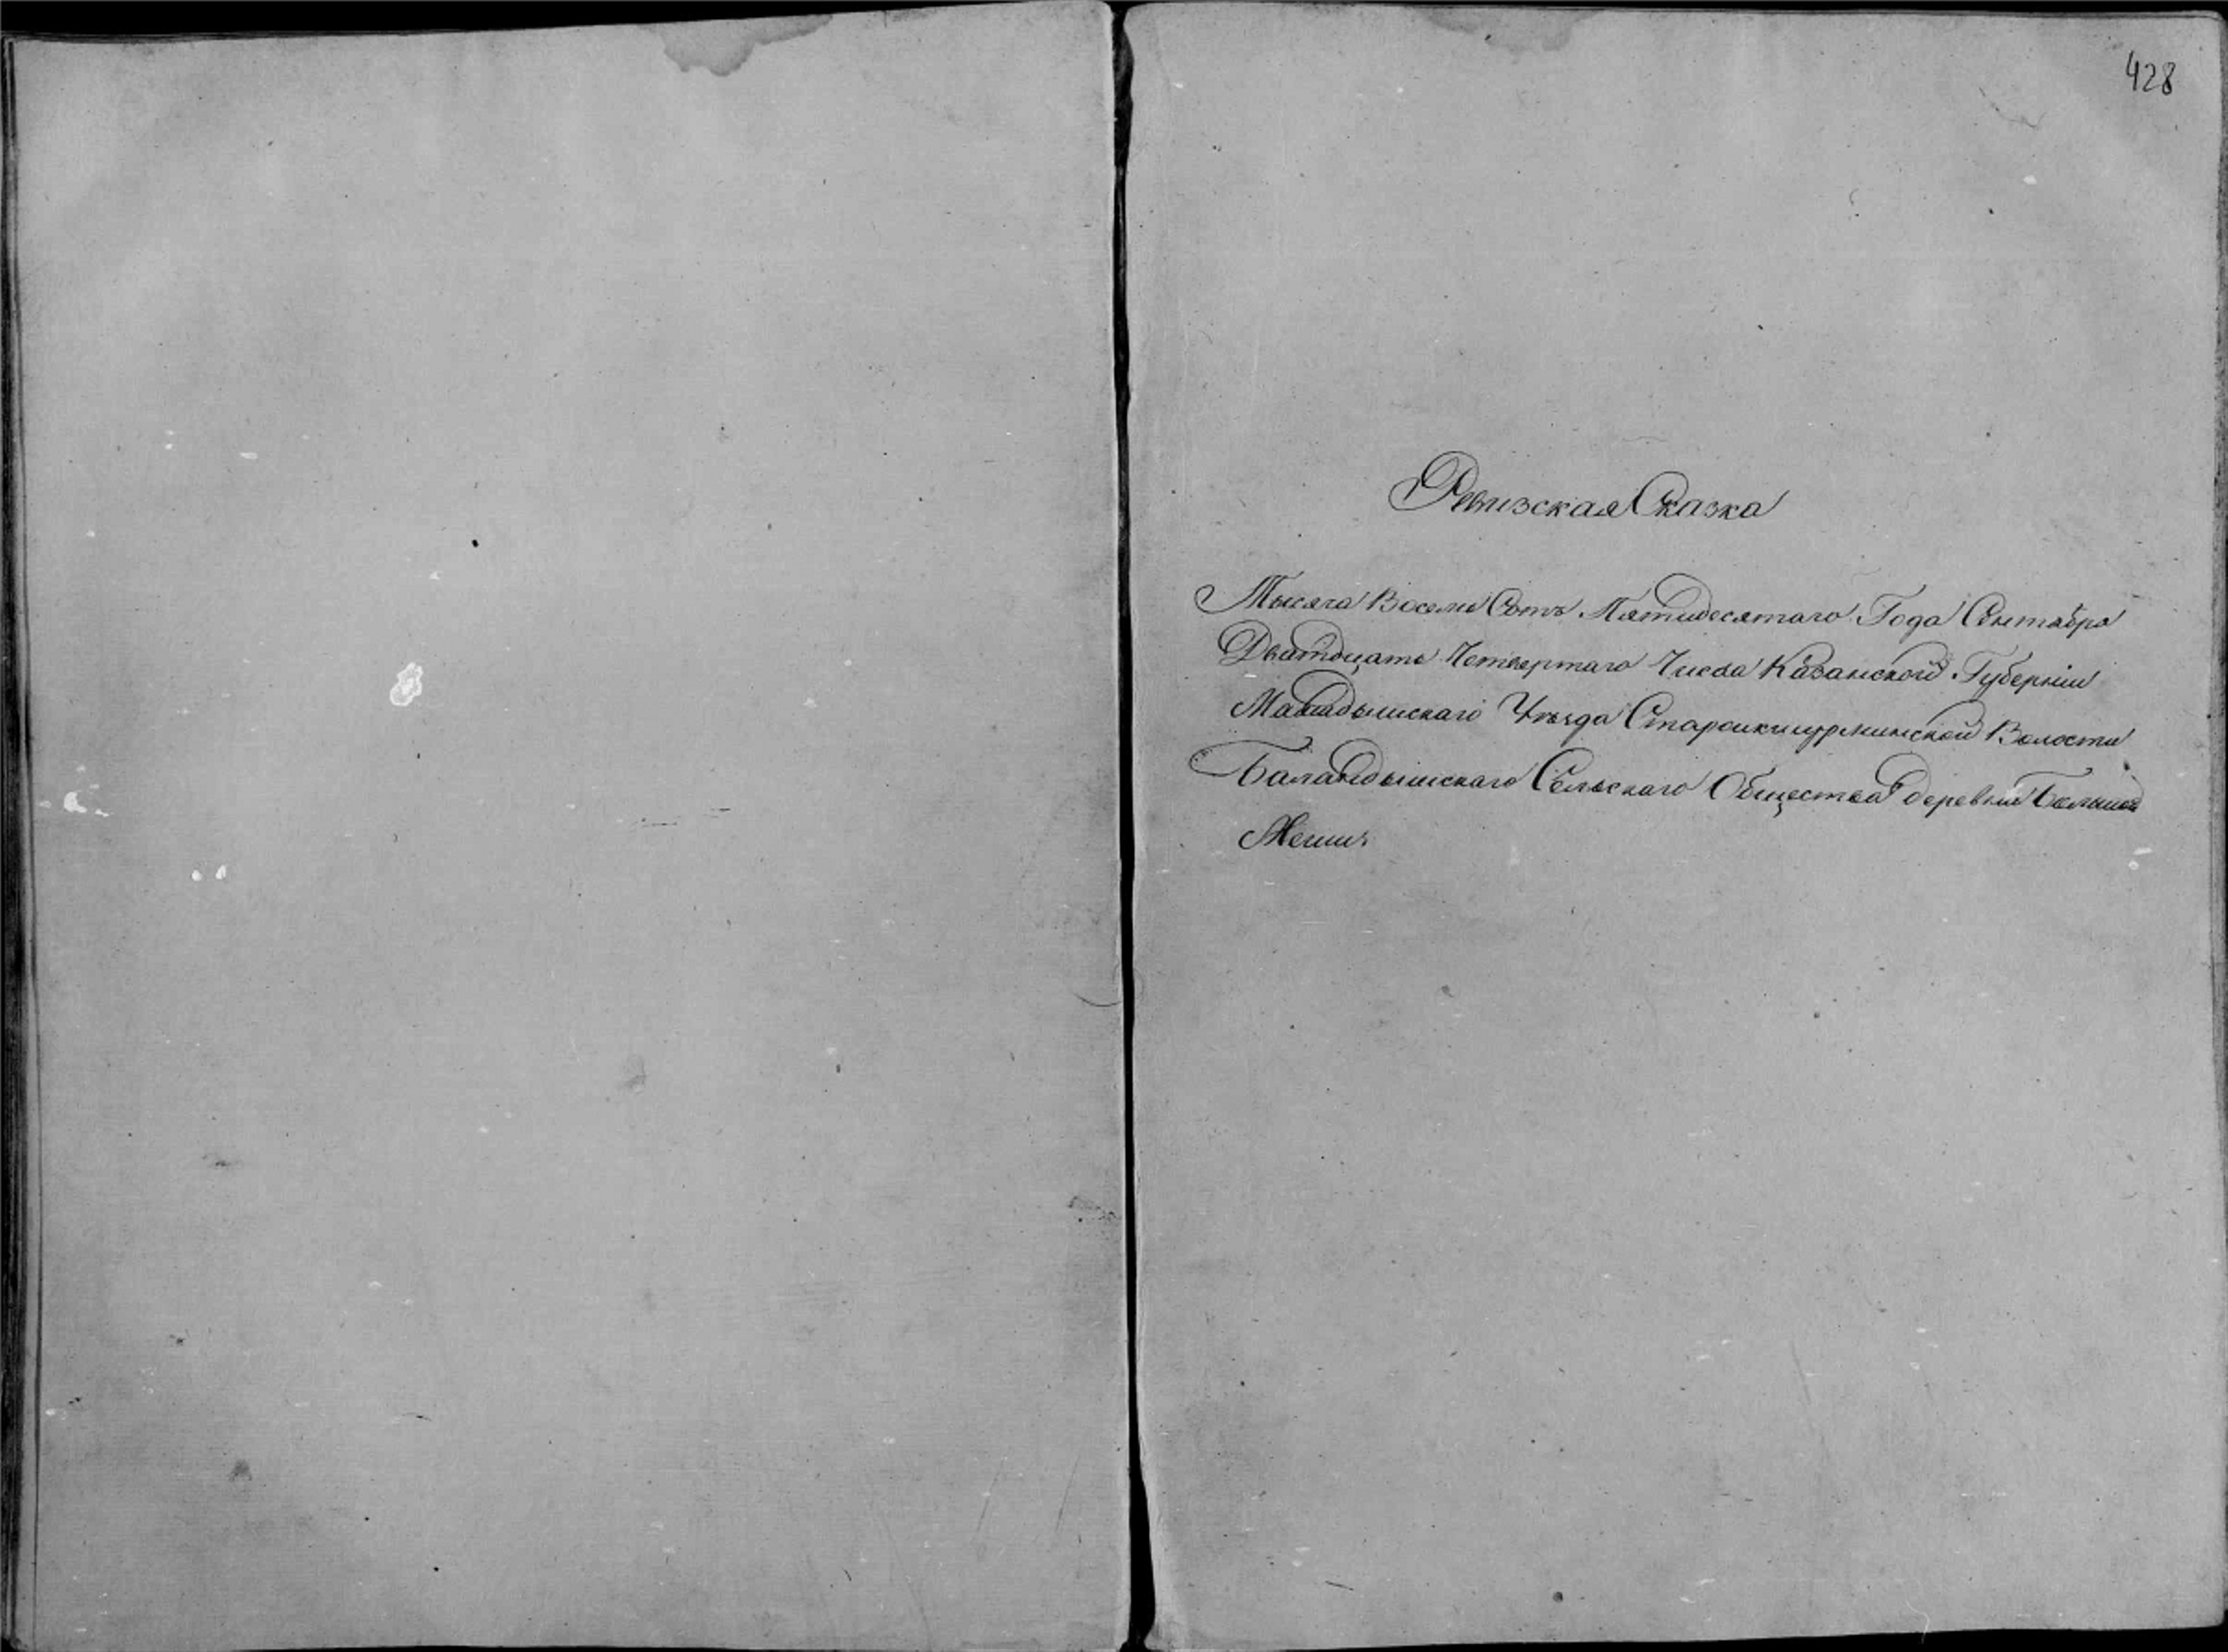 428
Ревизская Сказка
Тысяча Восемь Сотъ Пятидесятаго Года Сентября
Дватдцать Четвертаго Числа Казанской Губерніи
Мамадышскаго Уѣзда Староикшурминской Волости
Баландышскаго Сельскаго Общества деревни Большой
Меши.